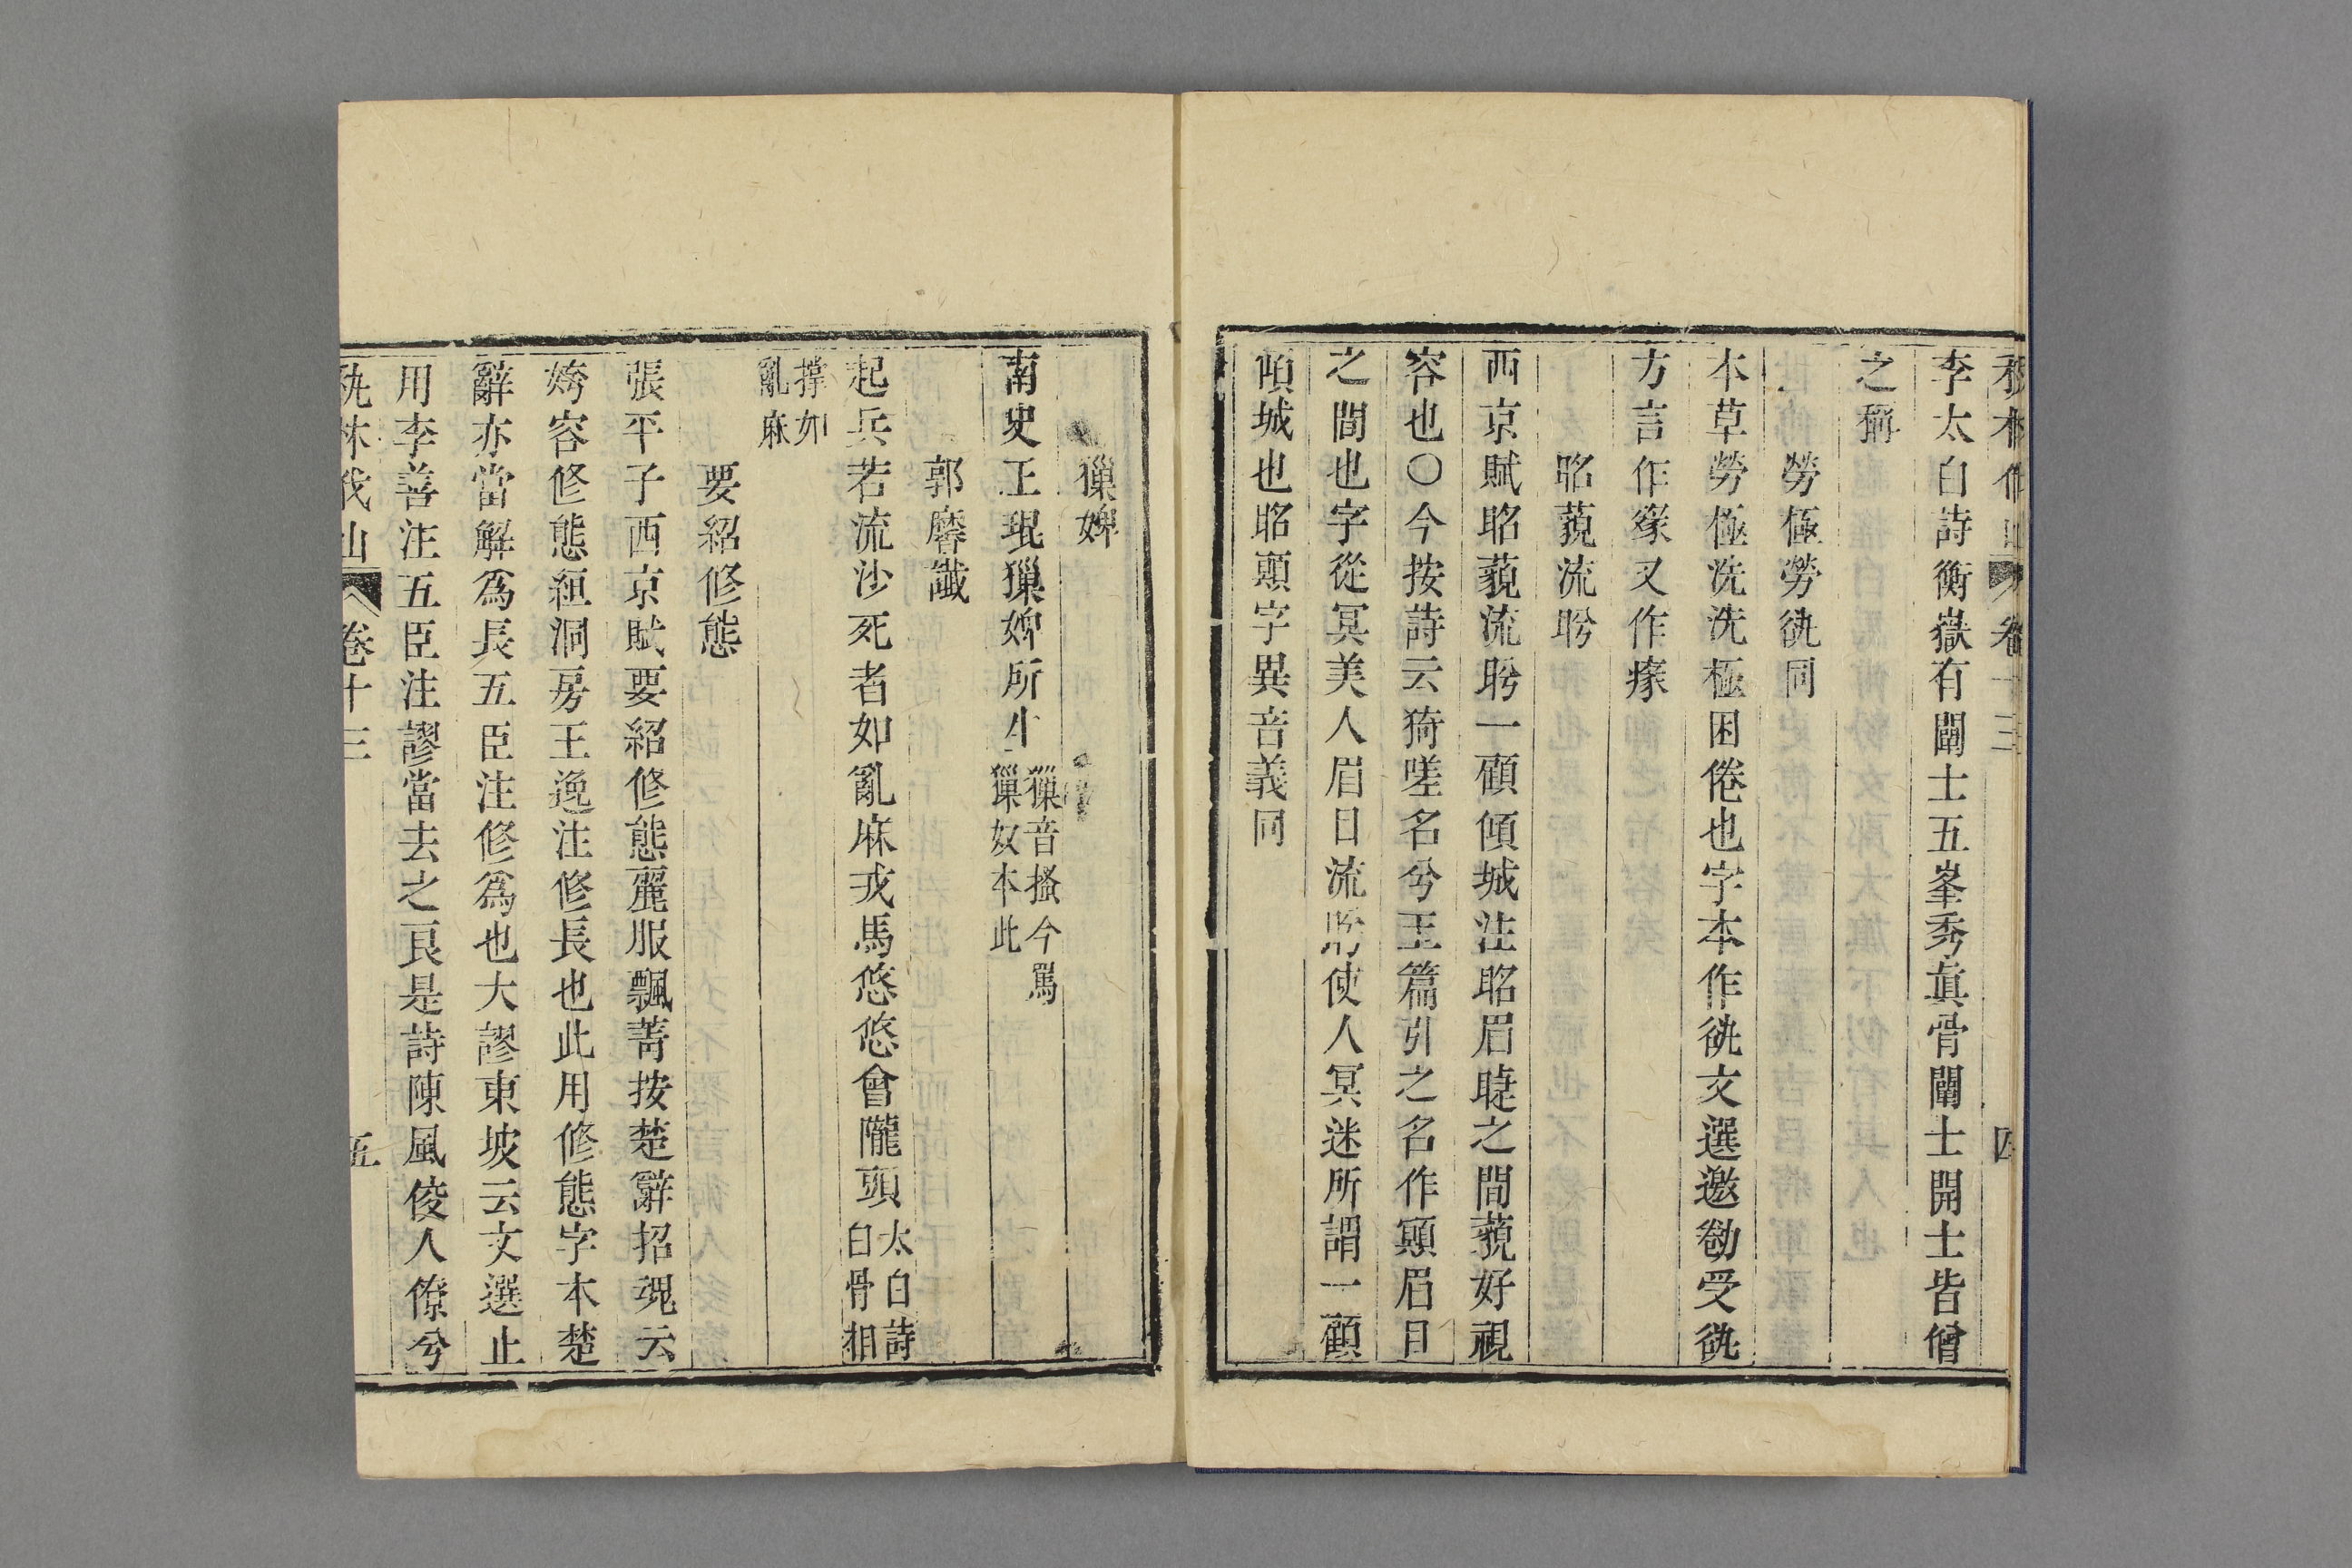 李太白詩衡嶽有闡士五峯秀眞骨闡士開士皆僧
之稱
勞極勞㑜同
本草勞極洗洗極困倦也字本作㑜文選邀𠢕受㑜
方言作㣻又作瘃
眳藐流眄
西京賦眳藐流眄一顧傾城注眳眉睫之間藐好視
容也○今按詩云猗嗟名兮玉篇引之名作顠眉目
之間也字從冥美人眉目流眄使人冥迷所謂一顧
傾城也眳顠字異音義同
卷十三
四
獵婢
南史王琨獵婢所生
獵音搔今罵
獵奴本此
郭黁讖
起兵若流沙死者如亂麻戎馬悠悠會隴頭
太白詩
白骨相
撐如
亂麻
要紹修態
張平子西京賦要紹修態麗服颺菁按楚辭招魂云
姱容修態絙洞房王逸注修長也此用修態字本楚
辭亦當解爲長五臣注修爲也大謬東坡云文選止
用李善注五臣注謬當去之良是詩陳風佼人僚兮
卷十三
五